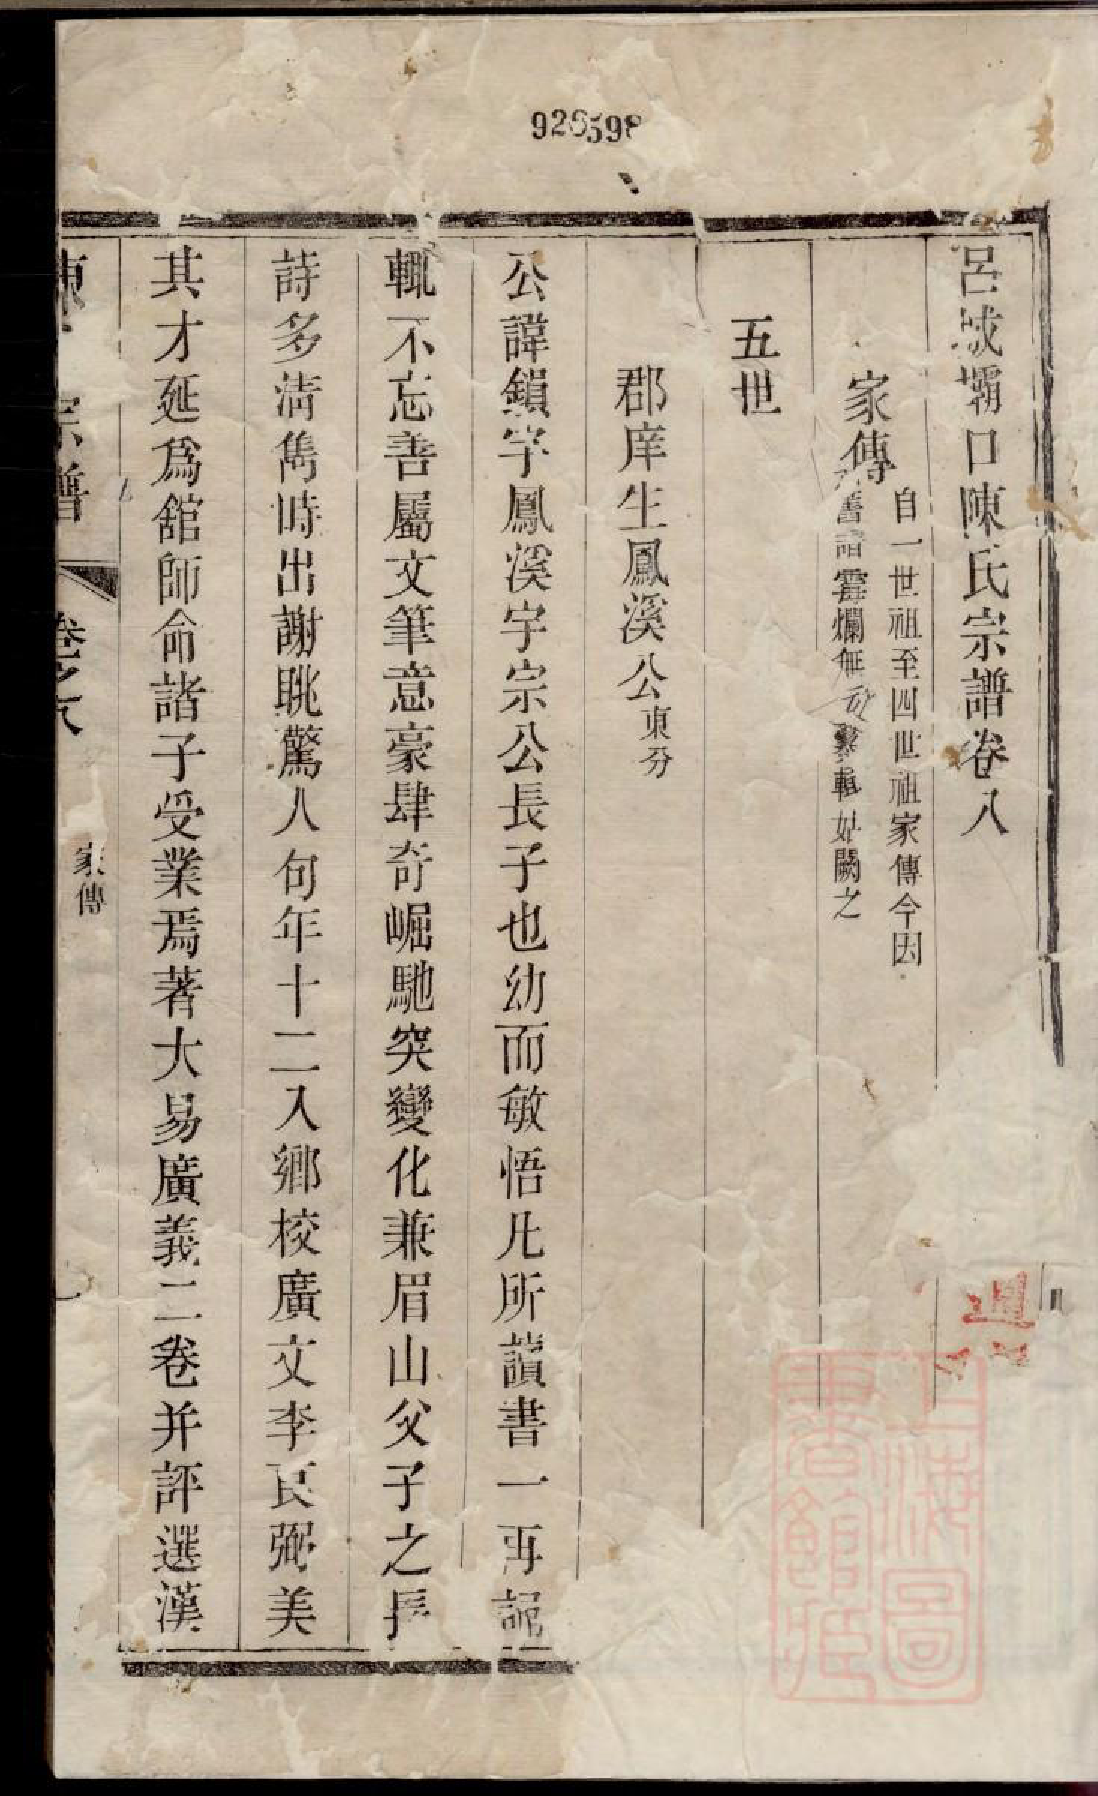 926598
呂城壩口陳氏宗譜卷八
家傳
自一世祖至四世祖家傳今因
舊譜霉爛無 輯姑闕之
五世
郡庠生鳳溪公東分
公諱鎖字鳳溪字宗公長子也幼而敏悟凡所讀書一再
輒不忘善屬文筆意豪肆奇崛馳突變化兼眉山父子之長
詩多清雋時出謝眺驚人句年十二入鄉校廣文李良弼美
其才延爲舘師命諸子受業焉著大易廣義二卷并評選漢
陳 宗譜
卷之八
家傳
上海圖書館藏